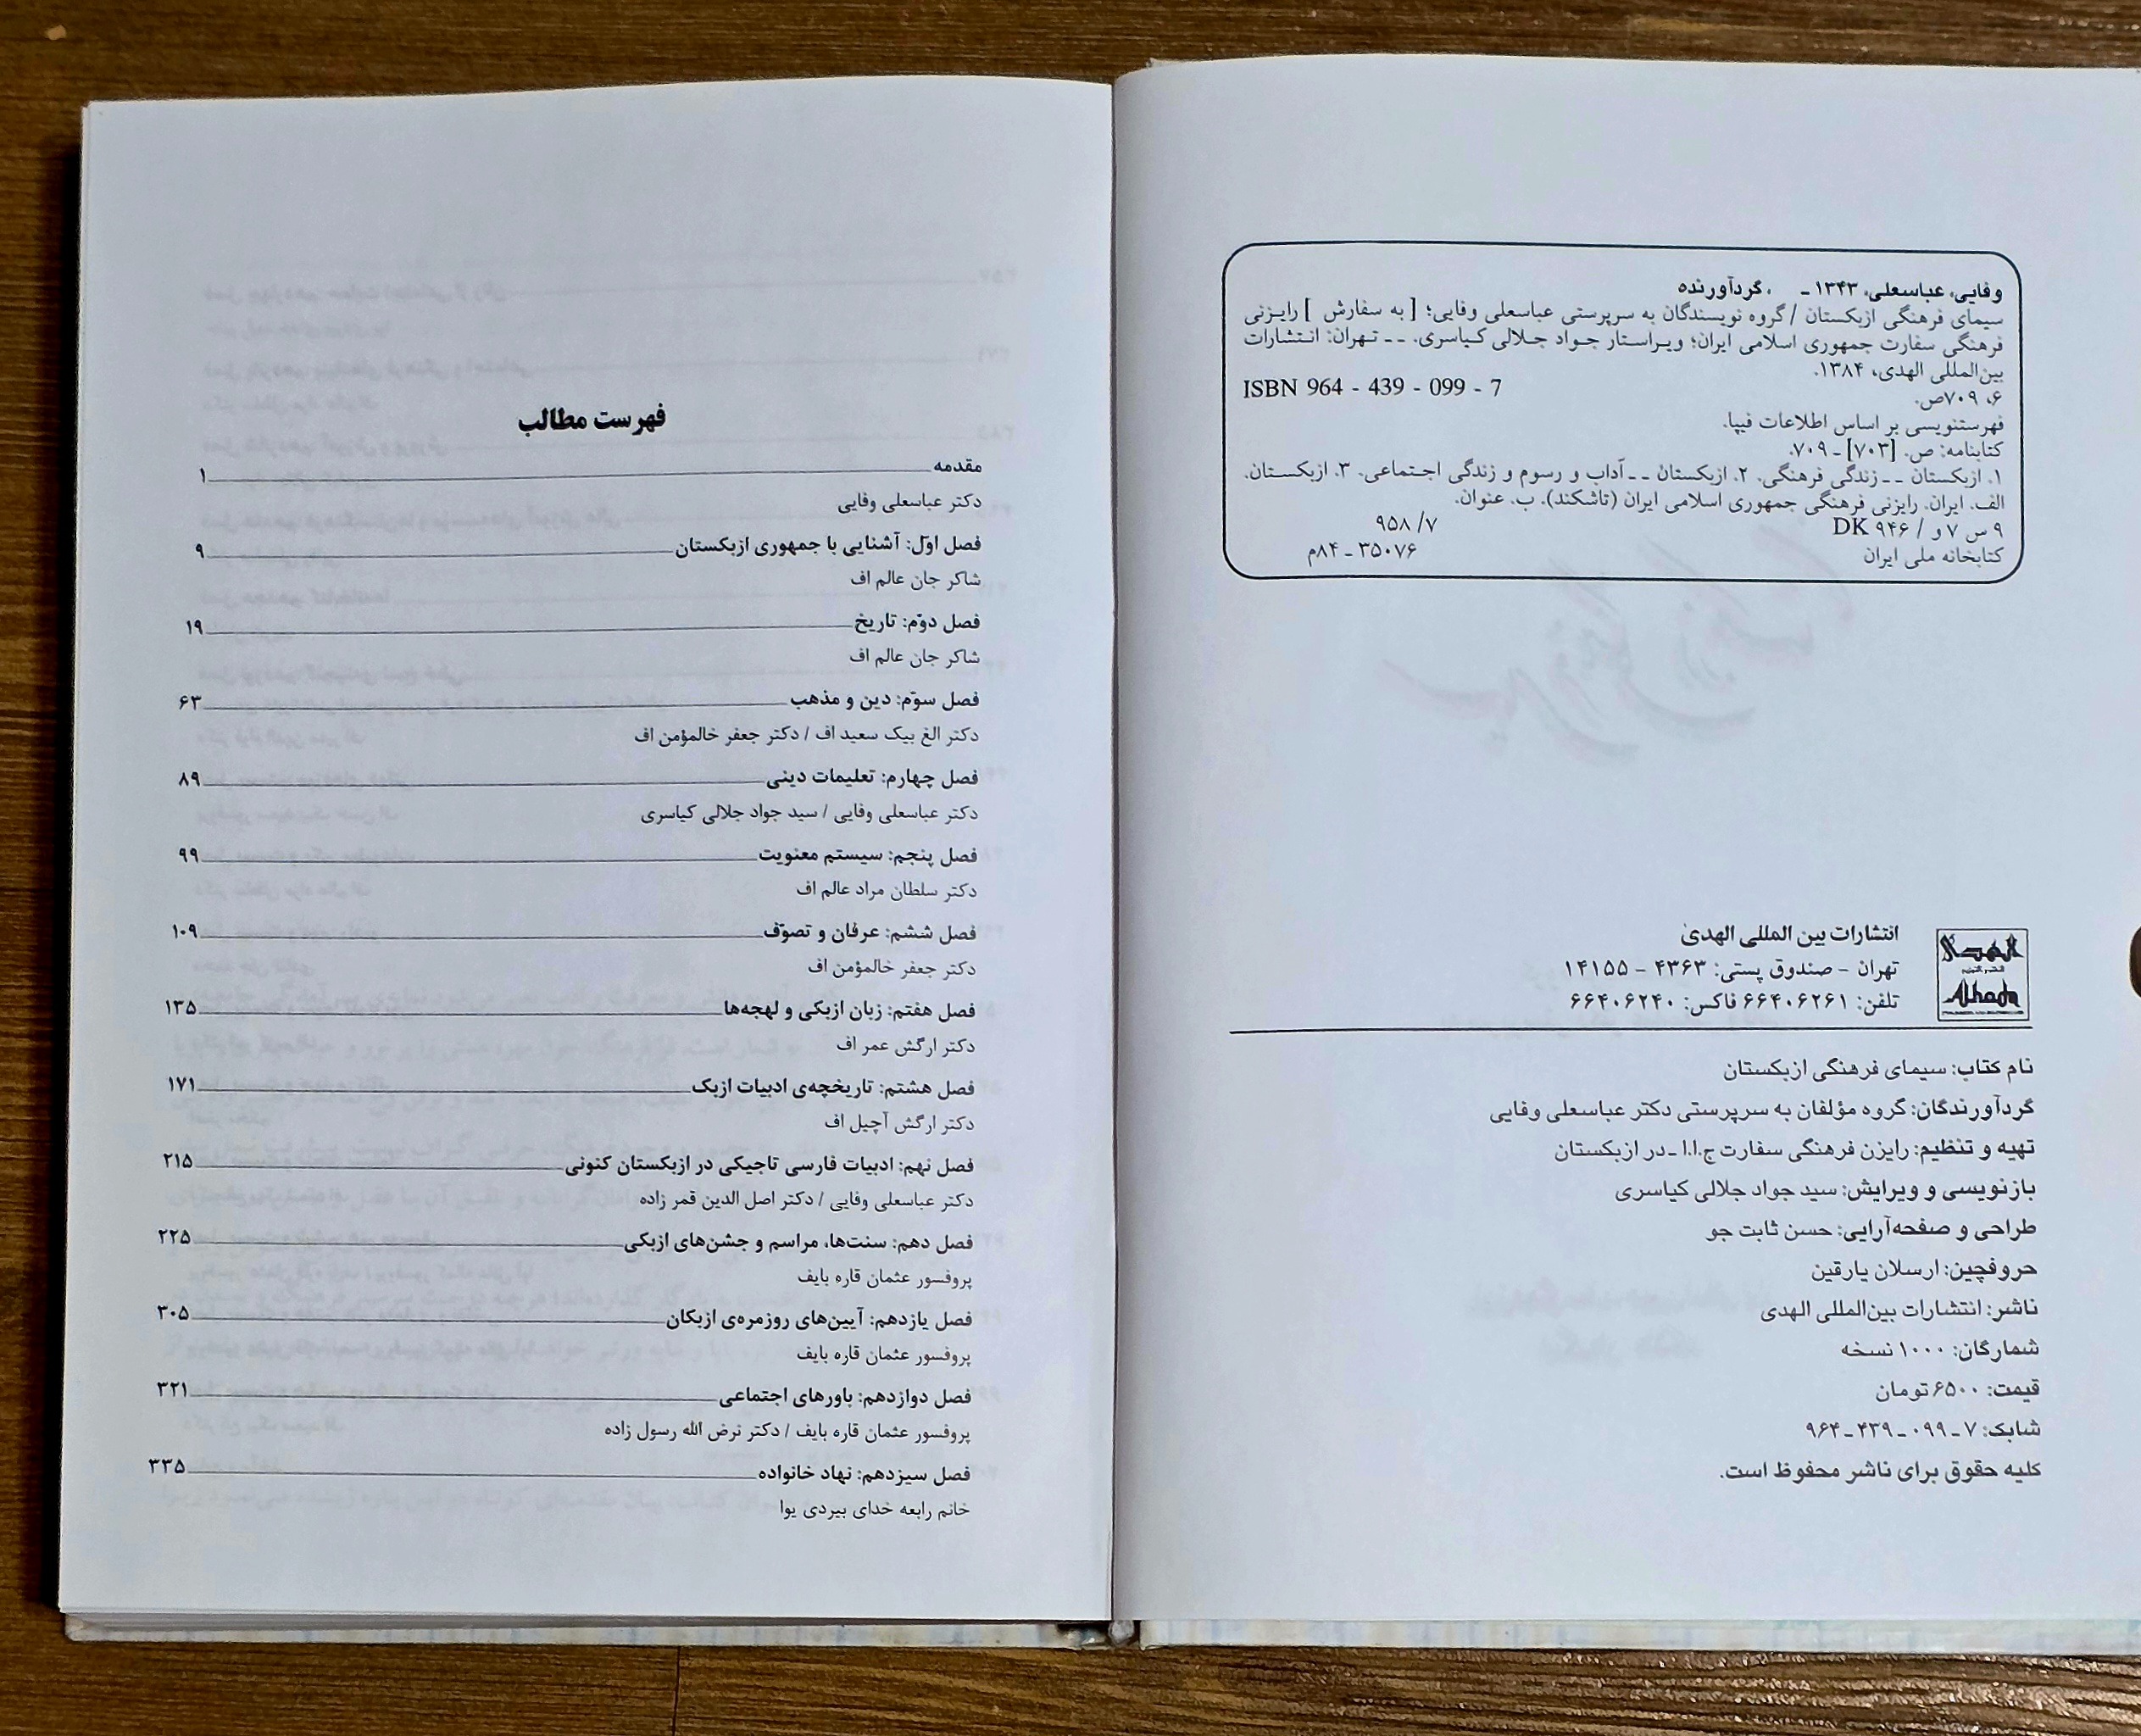 وفایی، عباسعلی، ۱۳۴۳ ـ ، گردآورنده
سیمای فرهنگی ازبکستان / گروه نویسندگان به سرپرستی عباسعلی وفایی؛ [ به سفارش ] رایزنی
فرهنگی سفارت جمهوری اسلامی ایران؛ ویراستار جواد جلالی کیاسری. ـ ـ تهران: انتشارات
بین‌المللی الهدی، ۱۳۸۴.
ISBN 964 - 439 - 099 - 7
۶، ۷۰۹ص.
فهرستنویسی بر اساس اطلاعات فیپا.
کتابنامه: ص. [۷۰۳] ـ ۷۰۹.
۱. ازبکستان ـ ـ زندگی فرهنگی. ۲. ازبکستان ـ ـ آداب و رسوم و زندگی اجتماعی. ۳. ازبکستان.
الف. ایران. رایزنی فرهنگی جمهوری اسلامی ایران (تاشکند). ب. عنوان.
۹ س ۷ و / ۹۴۶ DK ۹۵۸ /۷
کتابخانه ملی ایران ۳۵۰۷۶ ـ ۸۴م
الهدی
Alhoda
انتشارات بین المللی الهدیٰ
تهران - صندوق پستی: ۴۳۶۳ - ۱۴۱۵۵
تلفن: ۶۶۴۰۶۲۶۱ فاکس: ۶۶۴۰۶۲۴۰
نام کتاب: سیمای فرهنگی ازبکستان
گردآورندگان: گروه مؤلفان به سرپرستی دکتر عباسعلی وفایی
تهیه و تنظیم: رایزن فرهنگی سفارت ج.ا.ا ـ در ازبکستان
بازنویسی و ویرایش: سید جواد جلالی کیاسری
طراحی و صفحه‌آرایی: حسن ثابت جو
حروفچین: ارسلان یارقین
ناشر: انتشارات بین‌المللی الهدی
شمارگان: ۱۰۰۰ نسخه
قیمت: ۶۵۰۰ تومان
شابک: ۷ ـ ۰۹۹ ـ ۴۳۹ ـ ۹۶۴
کلیه حقوق برای ناشر محفوظ است.
فهرست مطالب
مقدمه ۱
دکتر عباسعلی وفایی
فصل اوّل: آشنایی با جمهوری ازبکستان ۹
شاکر جان عالم اف
فصل دوّم: تاریخ ۱۹
شاکر جان عالم اف
فصل سوّم: دین و مذهب ۶۳
دکتر الغ بیک سعید اف / دکتر جعفر خالمؤمن اف
فصل چهارم: تعلیمات دینی ۸۹
دکتر عباسعلی وفایی / سید جواد جلالی کیاسری
فصل پنجم: سیستم معنویت ۹۹
دکتر سلطان مراد عالم اف
فصل ششم: عرفان و تصوّف ۱۰۹
دکتر جعفر خالمؤمن اف
فصل هفتم: زبان ازبکی و لهجه‌ها ۱۳۵
دکتر ارگش عمر اف
فصل هشتم: تاریخچه‌ی ادبیات ازبک ۱۷۱
دکتر ارگش آچیل اف
فصل نهم: ادبیات فارسی تاجیکی در ازبکستان کنونی ۲۱۵
دکتر عباسعلی وفایی / دکتر اصل الدین قمر زاده
فصل دهم: سنت‌ها، مراسم و جشن‌های ازبکی ۲۲۵
پروفسور عثمان قاره بایف
فصل یازدهم: آیین‌های روزمره‌ی ازبکان ۳۰۵
پروفسور عثمان قاره بایف
فصل دوازدهم: باورهای اجتماعی ۳۲۱
پروفسور عثمان قاره بایف / دکتر نرض الله رسول زاده
فصل سیزدهم: نهاد خانواده ۳۳۵
خانم رابعه خدای بیردی یوا